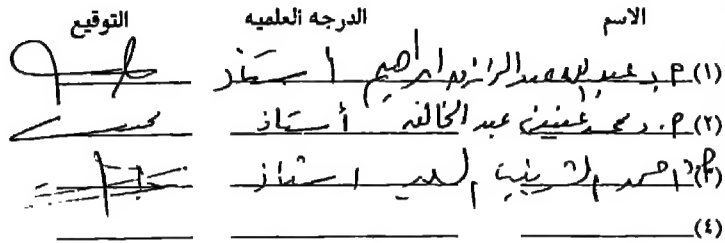 الاسم الدرجه العلميه التوقيع
(١) م. د عبد الله عبد الرازق ابراهيم استاذ
(٢) م. د. محمد عفيفى عبد الخالق أستاذ
(٣) احمد الشربينى السيد استاذ
(٤)